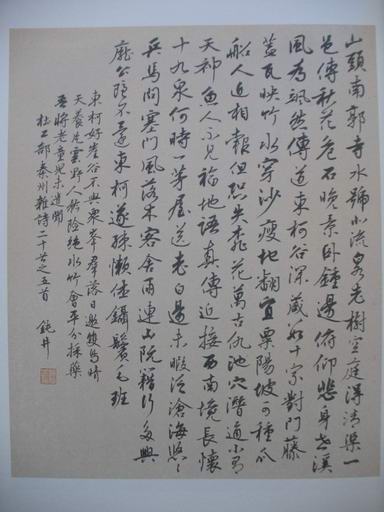 山頭南郭寺水號北流泉老樹空庭得清渠一
邑傳秋花危石晚景臥鐘邊俯仰悲身世溪
風為颯然傳道東柯谷深藏數十家對門藤
蓋瓦映竹水穿沙瘦地翻宜粟陽坡可種瓜
船人近相報但恐失桃花萬古仇池穴潛通小有
天神魚人不見福地語真傳近接西南境長懷
十九泉何時一茅屋送老白邊未暇泛滄海悠々
兵馬間塞門風落木客舍雨連山阮籍行多興
龐公隱不還東柯遂疎懶休鑷鬢毛班
東柯好崖谷不與衆峯群落日邀雙鳥晴
天養片雲野人矜險絶水竹會平分採藥
吾將老童兒未遣聞
杜工部秦州雜詩二十之五首 鈍井